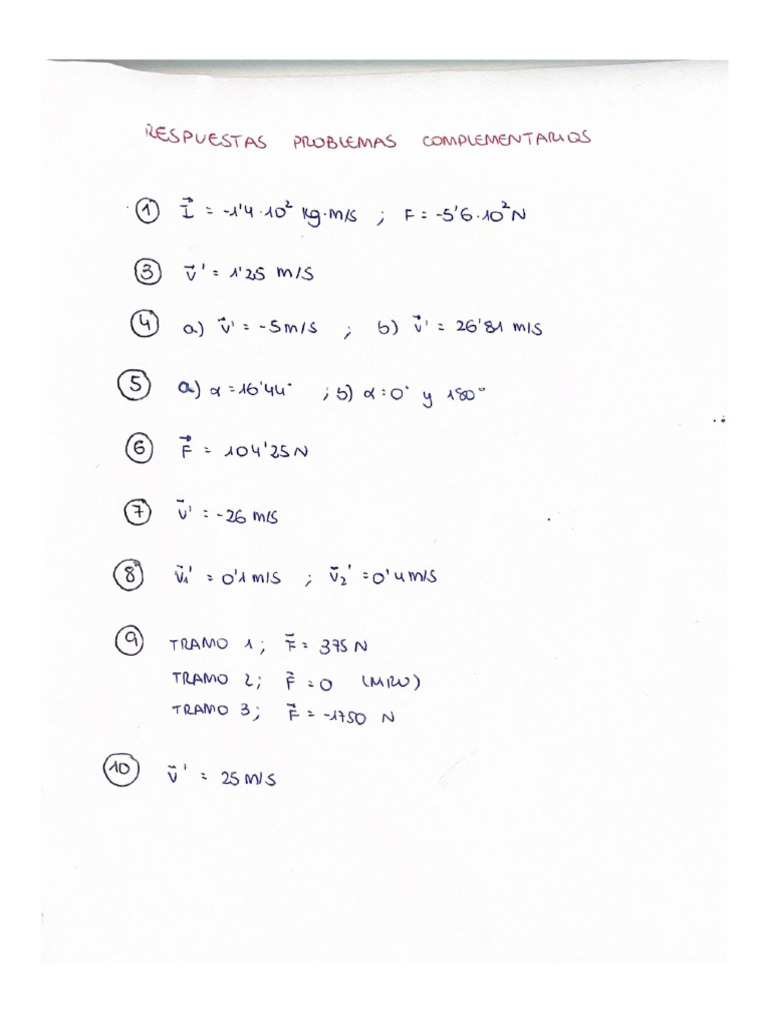 RESPUESTAS PROBLEMAS COMPLEMENTARIOS
① I⃗ = -1'4·10² kg·m/s ; F = -5'6·10² N
③ v⃗' = 1'25 m/s
④ a) v⃗' = -5 m/s ; b) v⃗' = 26'81 m/s
⑤ a) α = 16'44° ; b) α = 0° y 180°
⑥ F⃗ = 104'25 N
⑦ v⃗' = -26 m/s
⑧ v⃗₁' = 0'1 m/s ; v⃗₂' = 0'4 m/s
⑨ TRAMO 1; F⃗ = 375 N
TRAMO 2; F⃗ = 0 (MRU)
TRAMO 3; F⃗ = -1750 N
⑩ v⃗' = 25 m/s